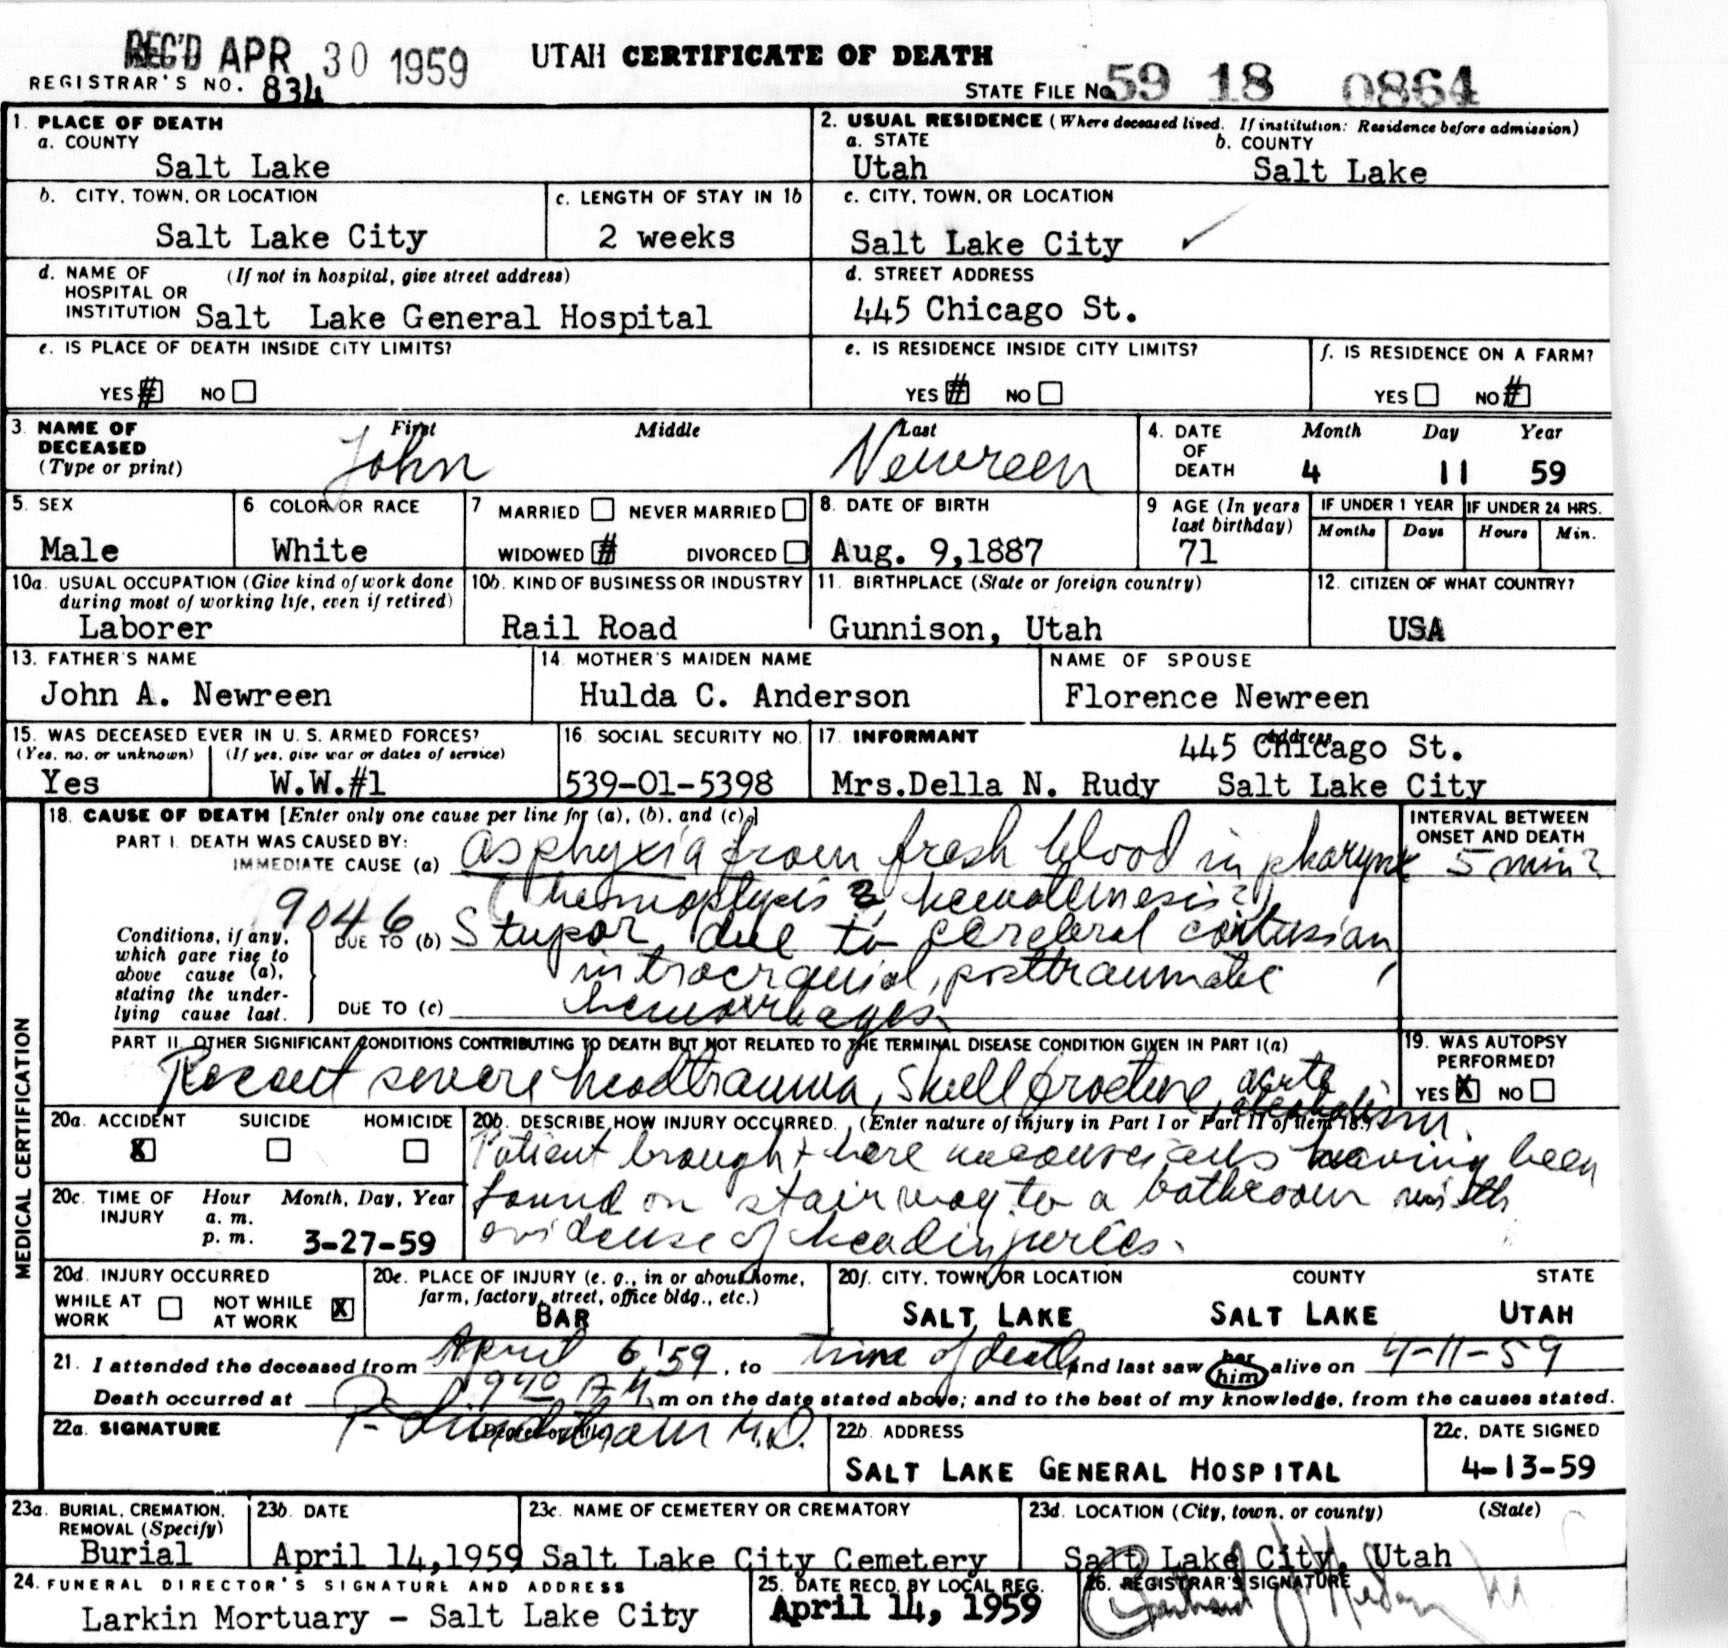 REC'D APR 30 1959
UTAH CERTIFICATE OF DEATH
REGISTRAR'S NO. 834
STATE FILE No. 59 18 0864
1. PLACE OF DEATH
a. COUNTY
Salt Lake
2. USUAL RESIDENCE (Where deceased lived. If institution: Residence before admission)
a. STATE b. COUNTY
Utah Salt Lake
b. CITY, TOWN, OR LOCATION
Salt Lake City
c. LENGTH OF STAY IN 1b
2 weeks
c. CITY, TOWN, OR LOCATION
Salt Lake City
d. NAME OF (If not in hospital, give street address)
HOSPITAL OR
INSTITUTION Salt Lake General Hospital
d. STREET ADDRESS
445 Chicago St.
e. IS PLACE OF DEATH INSIDE CITY LIMITS?
YES # NO
e. IS RESIDENCE INSIDE CITY LIMITS?
YES # NO
f. IS RESIDENCE ON A FARM?
YES NO #
3. NAME OF DECEASED (Type or print)
First Middle Last
John Newreen
4. DATE OF DEATH
Month Day Year
4 11 59
5. SEX
Male
6 COLOR OR RACE
White
7 MARRIED NEVER MARRIED
WIDOWED # DIVORCED
8. DATE OF BIRTH
Aug. 9,1887
9 AGE (In years last birthday)
71
IF UNDER 1 YEAR
Months Days
IF UNDER 24 HRS.
Hours Min.
10a. USUAL OCCUPATION (Give kind of work done
during most of working life, even if retired)
Laborer
10b. KIND OF BUSINESS OR INDUSTRY
Rail Road
11. BIRTHPLACE (State or foreign country)
Gunnison, Utah
12. CITIZEN OF WHAT COUNTRY?
USA
13. FATHER'S NAME
John A. Newreen
14. MOTHER'S MAIDEN NAME
Hulda C. Anderson
NAME OF SPOUSE
Florence Newreen
15. WAS DECEASED EVER IN U.S. ARMED FORCES?
(Yes, no, or unknown) (If yes, give war or dates of service)
Yes W.W.#1
16. SOCIAL SECURITY NO.
539-01-5398
17. INFORMANT Address
445 Chicago St.
Mrs.Della N. Rudy Salt Lake City
MEDICAL CERTIFICATION
18. CAUSE OF DEATH [Enter only one cause per line for (a), (b), and (c).]
PART I. DEATH WAS CAUSED BY:
IMMEDIATE CAUSE (a) asphyxia from fresh blood in pharynx
(hemoptysis?, hematemesis?)
INTERVAL BETWEEN
ONSET AND DEATH
5 min?
9046
Conditions, if any,
which gave rise to
above cause (a),
stating the under-
lying cause last.
DUE TO (b) Stupor due to cerebral contusion,
intracranial, posttraumatic
DUE TO (c) hemorrhages.
PART II. OTHER SIGNIFICANT CONDITIONS CONTRIBUTING TO DEATH BUT NOT RELATED TO THE TERMINAL DISEASE CONDITION GIVEN IN PART I(a)
Recent severe headtrauma, skull fracture, acute
alcoholism.
19. WAS AUTOPSY
PERFORMED?
YES X NO
20a. ACCIDENT SUICIDE HOMICIDE
X
20b. DESCRIBE HOW INJURY OCCURRED. (Enter nature of injury in Part I or Part II of item 18.)
Patient brought here unconscious having been
found on stairway to a bathroom with
evidence of head injuries.
20c. TIME OF INJURY
Hour Month, Day, Year
a. m.
p. m. 3-27-59
20d. INJURY OCCURRED
WHILE AT WORK NOT WHILE AT WORK X
20e. PLACE OF INJURY (e. g., in or about home,
farm, factory, street, office bldg., etc.)
BAR
20f. CITY, TOWN, OR LOCATION COUNTY STATE
SALT LAKE SALT LAKE UTAH
21. I attended the deceased from April 6, '59, to time of death and last saw her him alive on 4-11-59
Death occurred at 940 P.M. m on the date stated above; and to the best of my knowledge, from the causes stated.
22a. SIGNATURE
M.D.
22b. ADDRESS
SALT LAKE GENERAL HOSPITAL
22c. DATE SIGNED
4-13-59
23a. BURIAL, CREMATION,
REMOVAL (Specify)
Burial
23b. DATE
April 14,1959
23c. NAME OF CEMETERY OR CREMATORY
Salt Lake City Cemetery
23d. LOCATION (City, town, or county) (State)
Salt Lake City, Utah
24. FUNERAL DIRECTOR'S SIGNATURE AND ADDRESS
Larkin Mortuary - Salt Lake City
25. DATE RECD. BY LOCAL REG.
April 14, 1959
26. REGISTRAR'S SIGNATURE